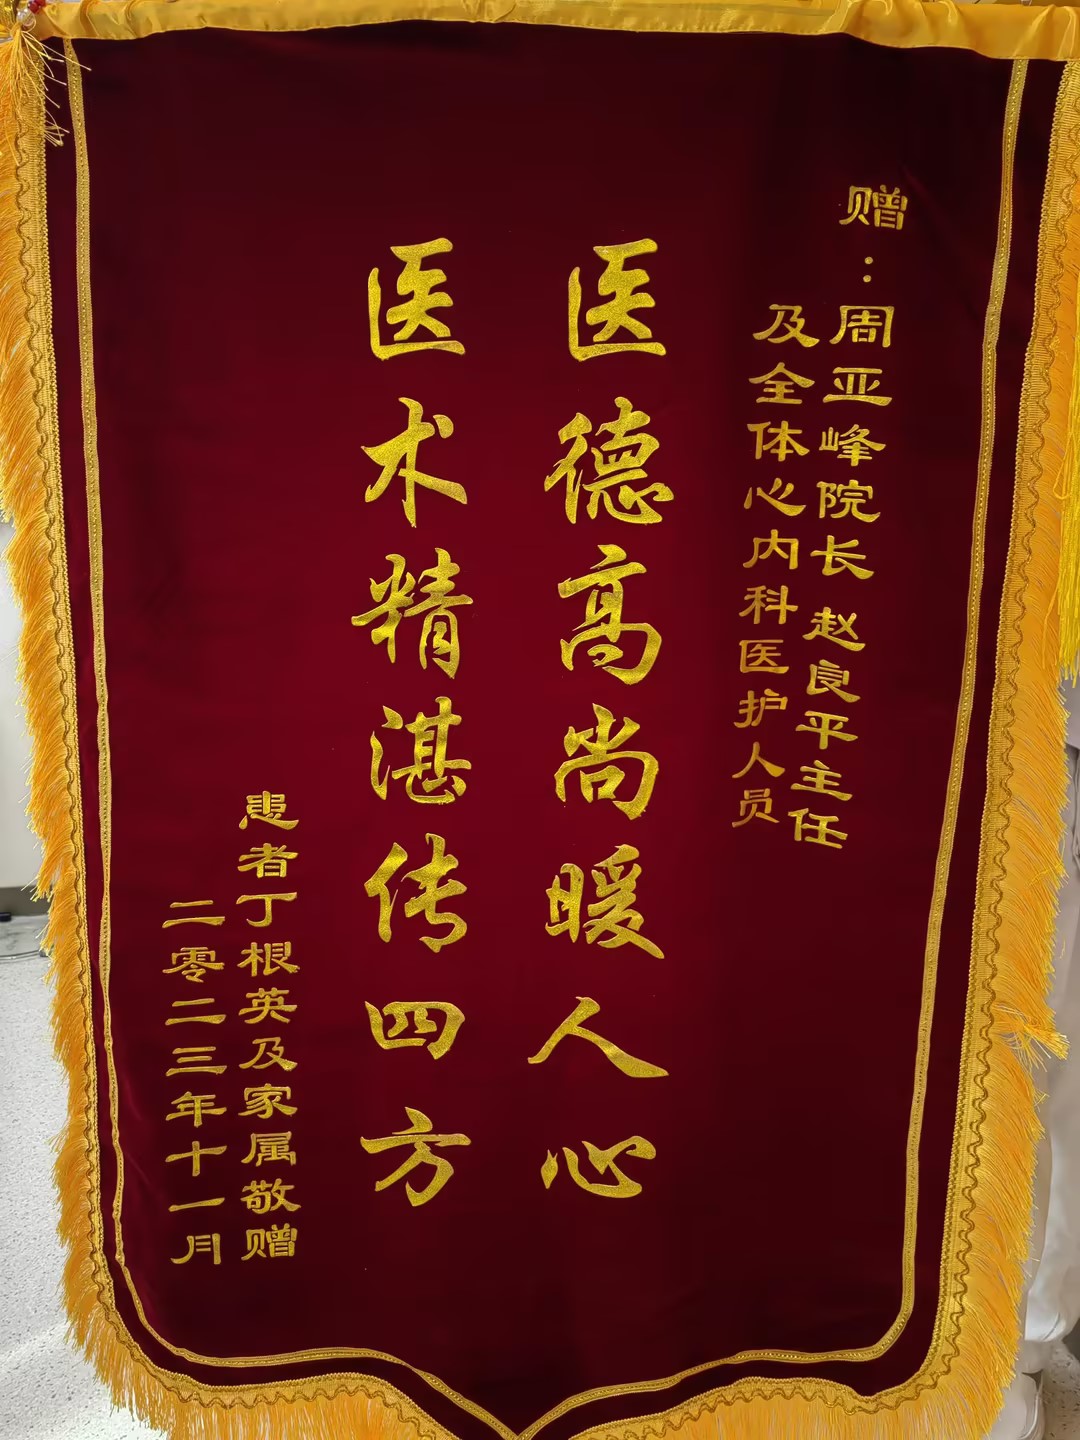 赠：周亚峰院长 赵良平主任
及全体心内科医护人员
医德高尚暖人心
医术精湛传四方
患者丁根英及家属敬赠
二零二三年十一月